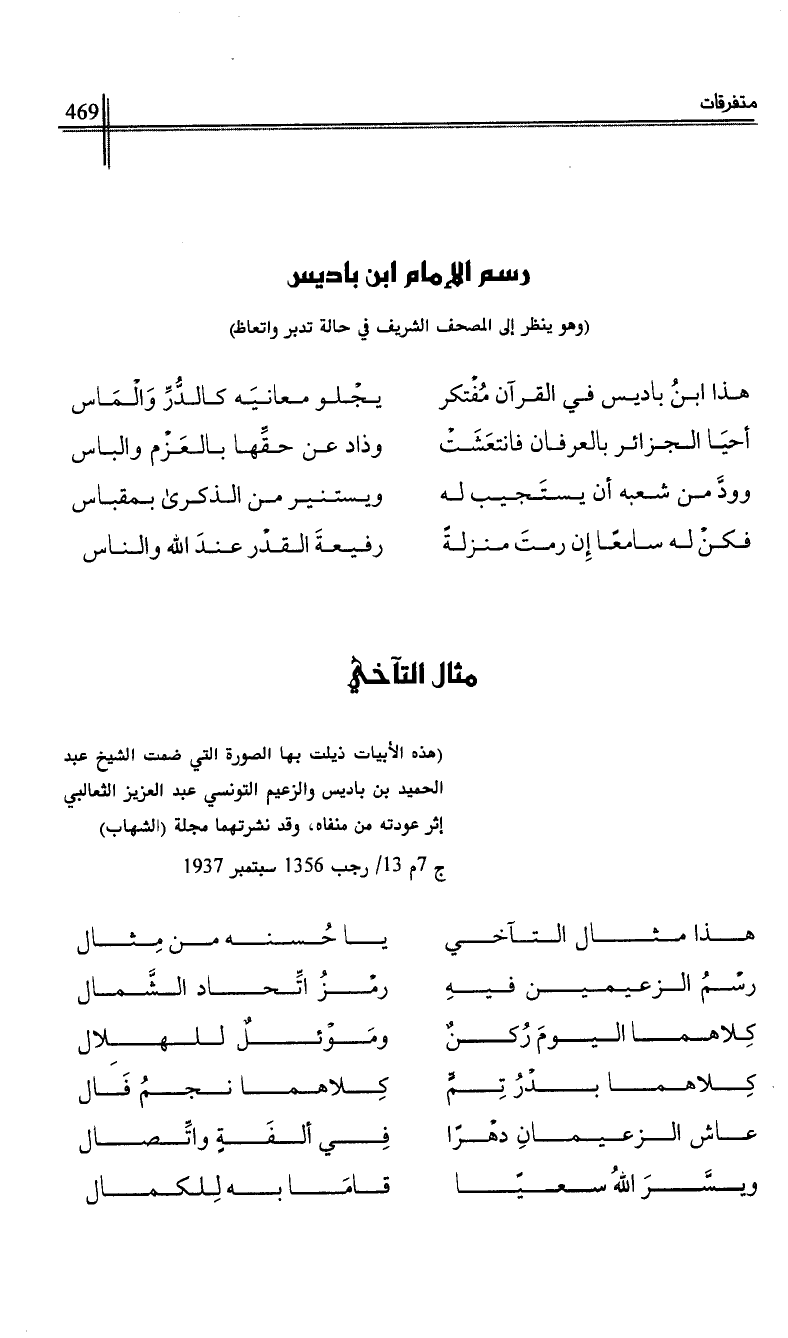 متفرقات
469
رسم الإمام ابن باديس
(وهو ينظر إلى المصحف الشريف في حالة تدبر واتعاظ)
هذا ابنُ باديس في القرآن مُفْتكر يجْلو معانيَه كالدُّرِّ وَالْمَاس
أحيَا الجزائر بالعرفان فانتعَشَتْ وذاد عن حقِّها بالعَزْم والباس
وودَّ من شعبه أن يستَجيب له ويستنير من الذكرىٰ بمقباس
فكنْ له سامعًا إن رمتَ منزلةً رفيعةَ القدْر عندَ الله والناس
مثال التآخي
(هذه الأبيات ذيلت بها الصورة التي ضمت الشيخ عبد
الحميد بن باديس والزعيم التونسي عبد العزيز الثعالبي
إثر عودته من منفاه، وقد نشرتهما مجلة (الشهاب)
ج 7م 13/ رجب 1356 سبتمبر 1937
هذا مثال التآخي يا حُسنه من مِثال
رسْمُ الزعيمين فيهِ رمْزُ اتِّحاد الشَّمال
كِلاهما اليومَ رُكنٌ ومَوْئلٌ للهلالِ
كِلاهما بدْرُ تِمٍّ كِلاهما نجمُ فَال
عاش الزعيمانِ دهْرًا فِي ألفَةٍ واتِّصال
ويسَّرَ اللهُ سعيًا قامَا به لِلكمال